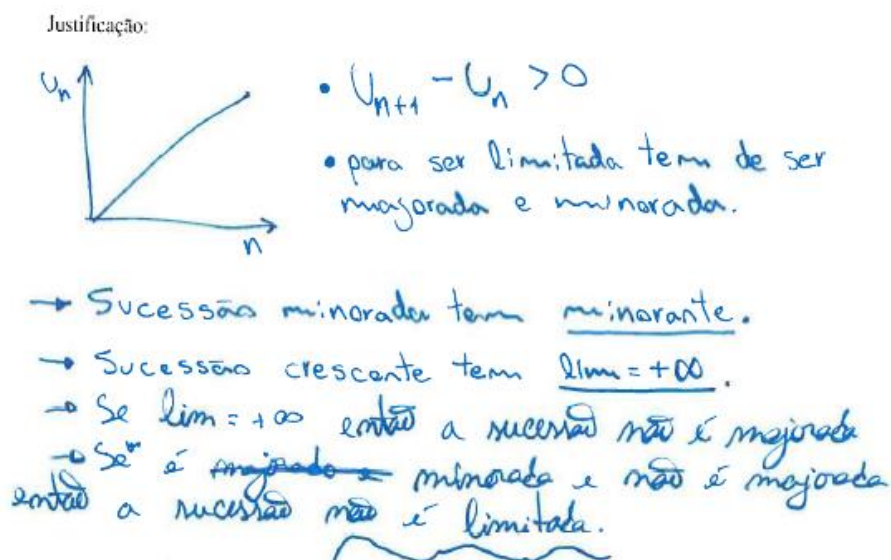 Justificação:
Un
n
• Un+1 - Un > 0
• para ser limitada tem de ser
majorada e minorada.
→ Sucessão minorada tem minorante.
→ Sucessão crescente tem lim = +∞.
→ Se lim = +∞ então a sucessão não é majorada
→ Se é majorada e minorada e não é majorada
então a sucessão não é limitada.